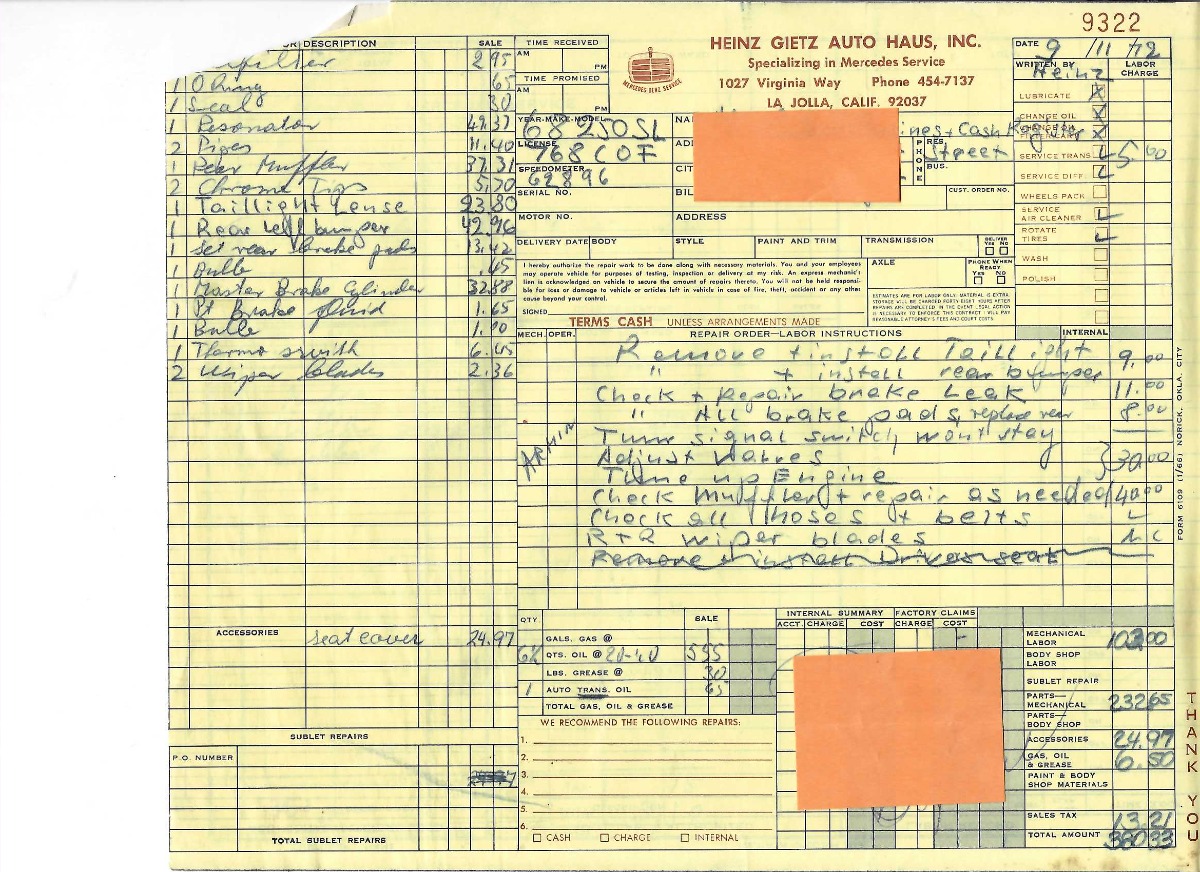 9322
HEINZ GIETZ AUTO HAUS, INC.
Specializing in Mercedes Service
1027 Virginia Way Phone 454-7137
LA JOLLA, CALIF. 92037
MERCEDES BENZ SERVICE
DATE 9/11/72
WRITTEN BY Heinz
LABOR CHARGE
LUBRICATE X
CHANGE OIL X
SERVICE TRANS 5.00
SERVICE DIFF.
WHEELS PACK
SERVICE AIR CLEANER
ROTATE TIRES
WASH
POLISH
DESCRIPTION SALE
2 95
1 O Ring 65
1 Seal 30
1 Resonator 49.37
2 Pipes 11.40
1 Rear Muffler 37.31
2 Chrome Tips 5.70
1 Taillight Lense 23.80
1 Rear left bumper 42.96
1 Set rear brake pads 13.42
1 Bulb .45
1 Master Brake Cylinder 32.88
1 Pt Brake fluid 1.65
1 Bulb 1.00
1 Thermo swith 6.45
2 Wiper blades 2.36
TIME RECEIVED
AM PM
TIME PROMISED
AM PM
YEAR-MAKE-MODEL
68 250SL
LICENSE
768 COF
SPEEDOMETER
62896
SERIAL NO.
MOTOR NO.
ADDRESS
PHONE
RES.
Street
BUS.
CUST. ORDER NO.
DELIVERY DATE BODY STYLE PAINT AND TRIM TRANSMISSION DELIVER YES NO
AXLE PHONE WHEN READY YES NO
I hereby authorize the repair work to be done along with necessary materials. You and your employees
may operate vehicle for purposes of testing, inspection or delivery at my risk. An express mechanic's
lien is acknowledged on vehicle to secure the amount of repairs thereto. You will not be held responsible
for loss or damage to vehicle or articles left in vehicle in case of fire, theft, accident or any other
cause beyond your control.
SIGNED
ESTIMATES ARE FOR LABOR ONLY, MATERIAL IS EXTRA.
STORAGE WILL BE CHARGED FORTY EIGHT HOURS AFTER
REPAIRS ARE COMPLETED. IN THE EVENT LEGAL ACTION
IS NECESSARY TO ENFORCE THIS CONTRACT I WILL PAY
REASONABLE ATTORNEY'S FEES AND COURT COSTS.
TERMS CASH UNLESS ARRANGEMENTS MADE
MECH. OPER. REPAIR ORDER—LABOR INSTRUCTIONS INTERNAL
Remove + install Taillight 9.00
" + install rear bumper
Check + Repair brake Leak 11.00
" All brake pads, replace rear 8.00
ARMIN
Turn signal switch wont stay
Adjust Valves
Tune up Engine 30.00
Check Muffler + repair as needed 40.00
Check all hoses + belts
R+R wiper blades N C
Remove + install Drivers seat
FORM 6109 (1/66) NORICK, OKLA. CITY
ACCESSORIES seat cover 24.97
SUBLET REPAIRS
P.O. NUMBER
TOTAL SUBLET REPAIRS
QTY. SALE
GALS. GAS @
6½ QTS. OIL @ 20-40 5 55
LBS. GREASE @ 30
1 AUTO TRANS. OIL 65
TOTAL GAS, OIL & GREASE
WE RECOMMEND THE FOLLOWING REPAIRS:
1.
2.
3.
4.
5.
6.
CASH CHARGE INTERNAL
INTERNAL SUMMARY FACTORY CLAIMS
ACCT. CHARGE COST CHARGE COST
MECHANICAL LABOR 103.00
BODY SHOP LABOR
SUBLET REPAIR
PARTS—MECHANICAL 232 65
PARTS—BODY SHOP
ACCESSORIES 24.97
GAS, OIL & GREASE 6.50
PAINT & BODY SHOP MATERIALS
SALES TAX 13.21
TOTAL AMOUNT 380 33
THANK YOU